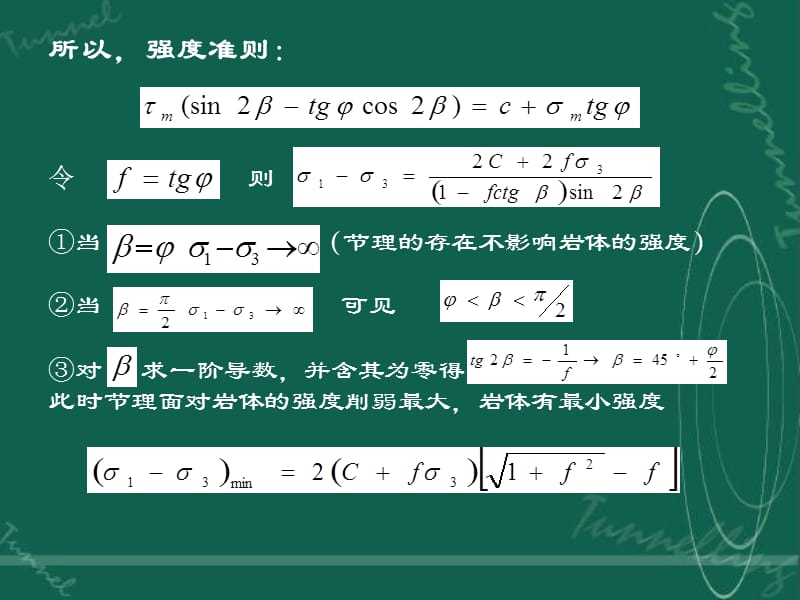 Tunnel
所以，强度准则：
τ_m (sin 2β − tgφ cos 2β) = c + σ_m tgφ
令 f = tgφ 则 σ_1 − σ_3 = (2C + 2fσ_3) / ((1 − fctg β) sin 2β)
①当 β=φ σ_1−σ_3→∞（节理的存在不影响岩体的强度）
②当 β = π/2 σ_1 − σ_3 → ∞ 可见 φ < β < π/2
③对 β 求一阶导数，并含其为零得 tg 2β = − 1/f → β = 45° + φ/2
此时节理面对岩体的强度削弱最大，岩体有最小强度
(σ_1 − σ_3)_min = 2(C + fσ_3)[√(1 + f^2) − f]
Tunnelling
Tunnel
Tunnelling